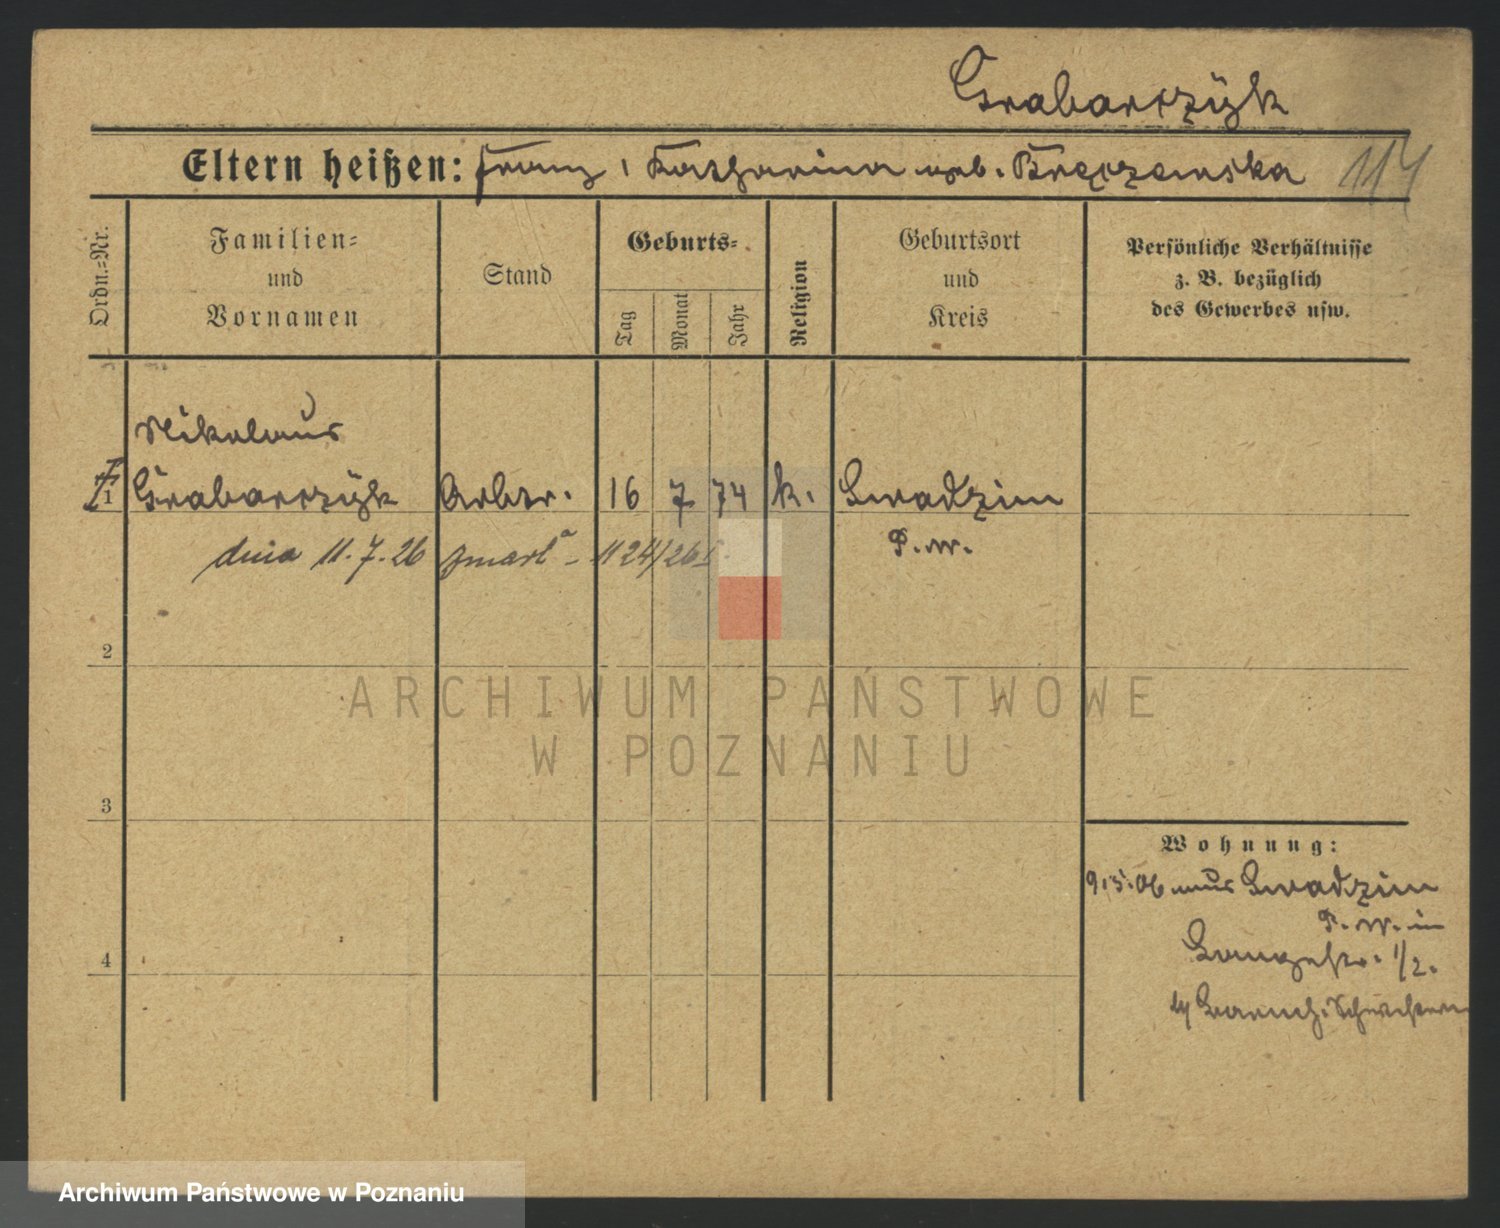 Grabarczÿk
Eltern heißen: Franz, Katharina geb. Bręczewska 114
Ordn.=Nr.
Familien=
und
Vornamen
Stand
Geburts=
Tag
Monat
Jahr
Religion
Geburtsort
und
Kreis
Persönliche Verhältnisse
z. B. bezüglich
des Gewerbes usw.
Nikolaus
1 Grabarczÿk Arbtr. 16 7 74 k. Swadzim
P. W.
dnia 11.7.26 zmarł - 1124/26
2
3
4
Wohnung:
9.5.06 aus Swadzim
P. W. in
Langestr. 1/2.
b/ Schwestern
ARCHIWUM PAŃSTWOWE
W POZNANIU
Archiwum Państwowe w Poznaniu